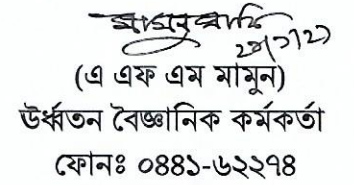 (এ এফ এম মামুন)
উর্ধ্বতন বৈজ্ঞানিক কর্মকর্তা
ফোনঃ ০৪৪১-৬২২৭৪